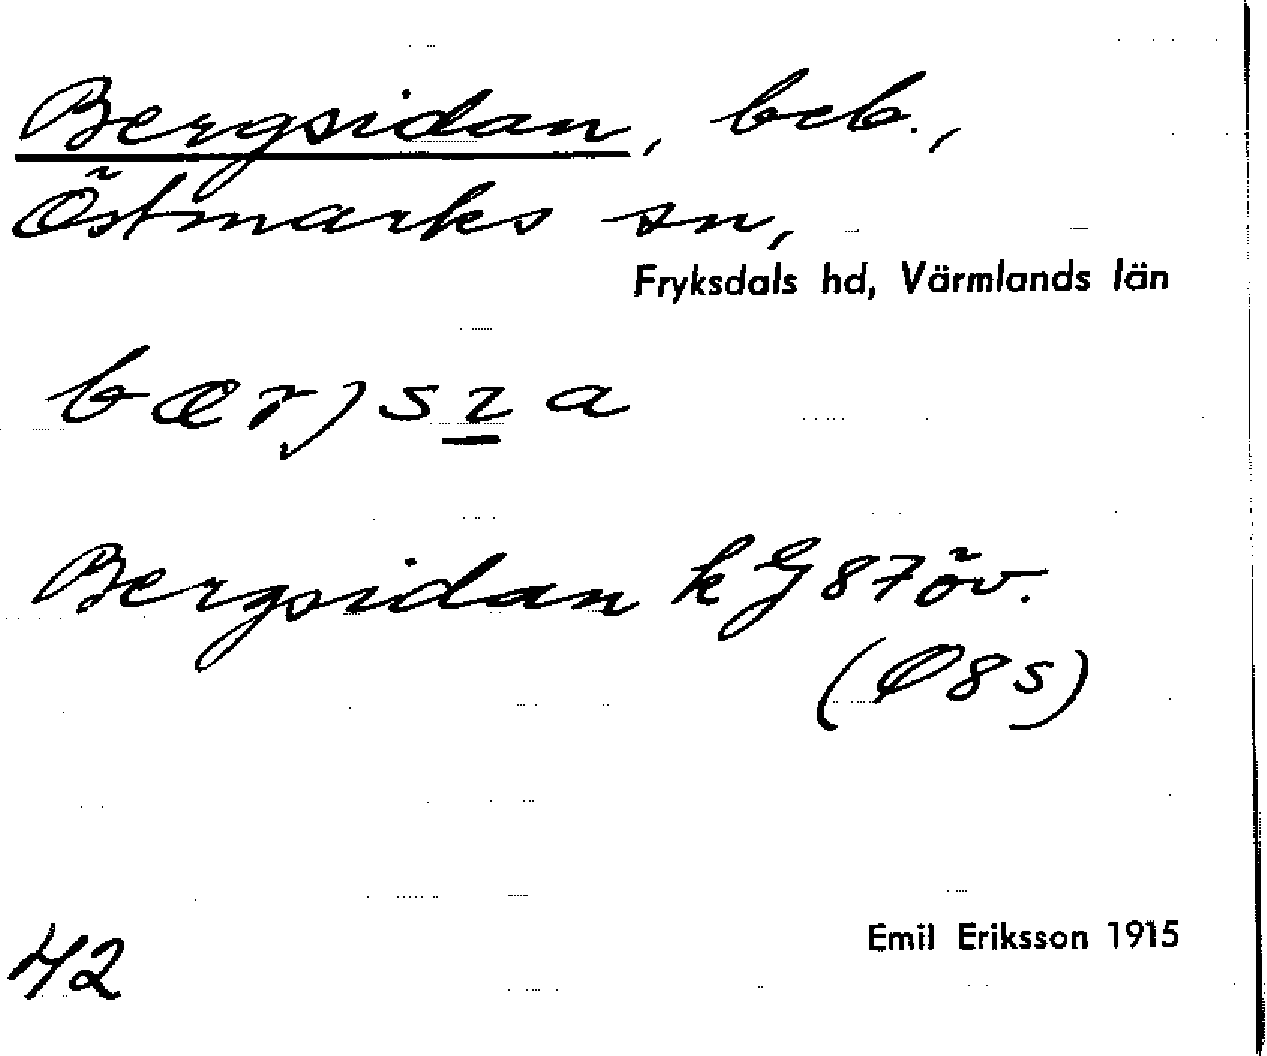 Bergsidan, beb.,
Östmarks sn,
Fryksdals hd, Värmlands län
Bergsidan kG 87öv.
(Ø8s)
42
Emil Eriksson 1915